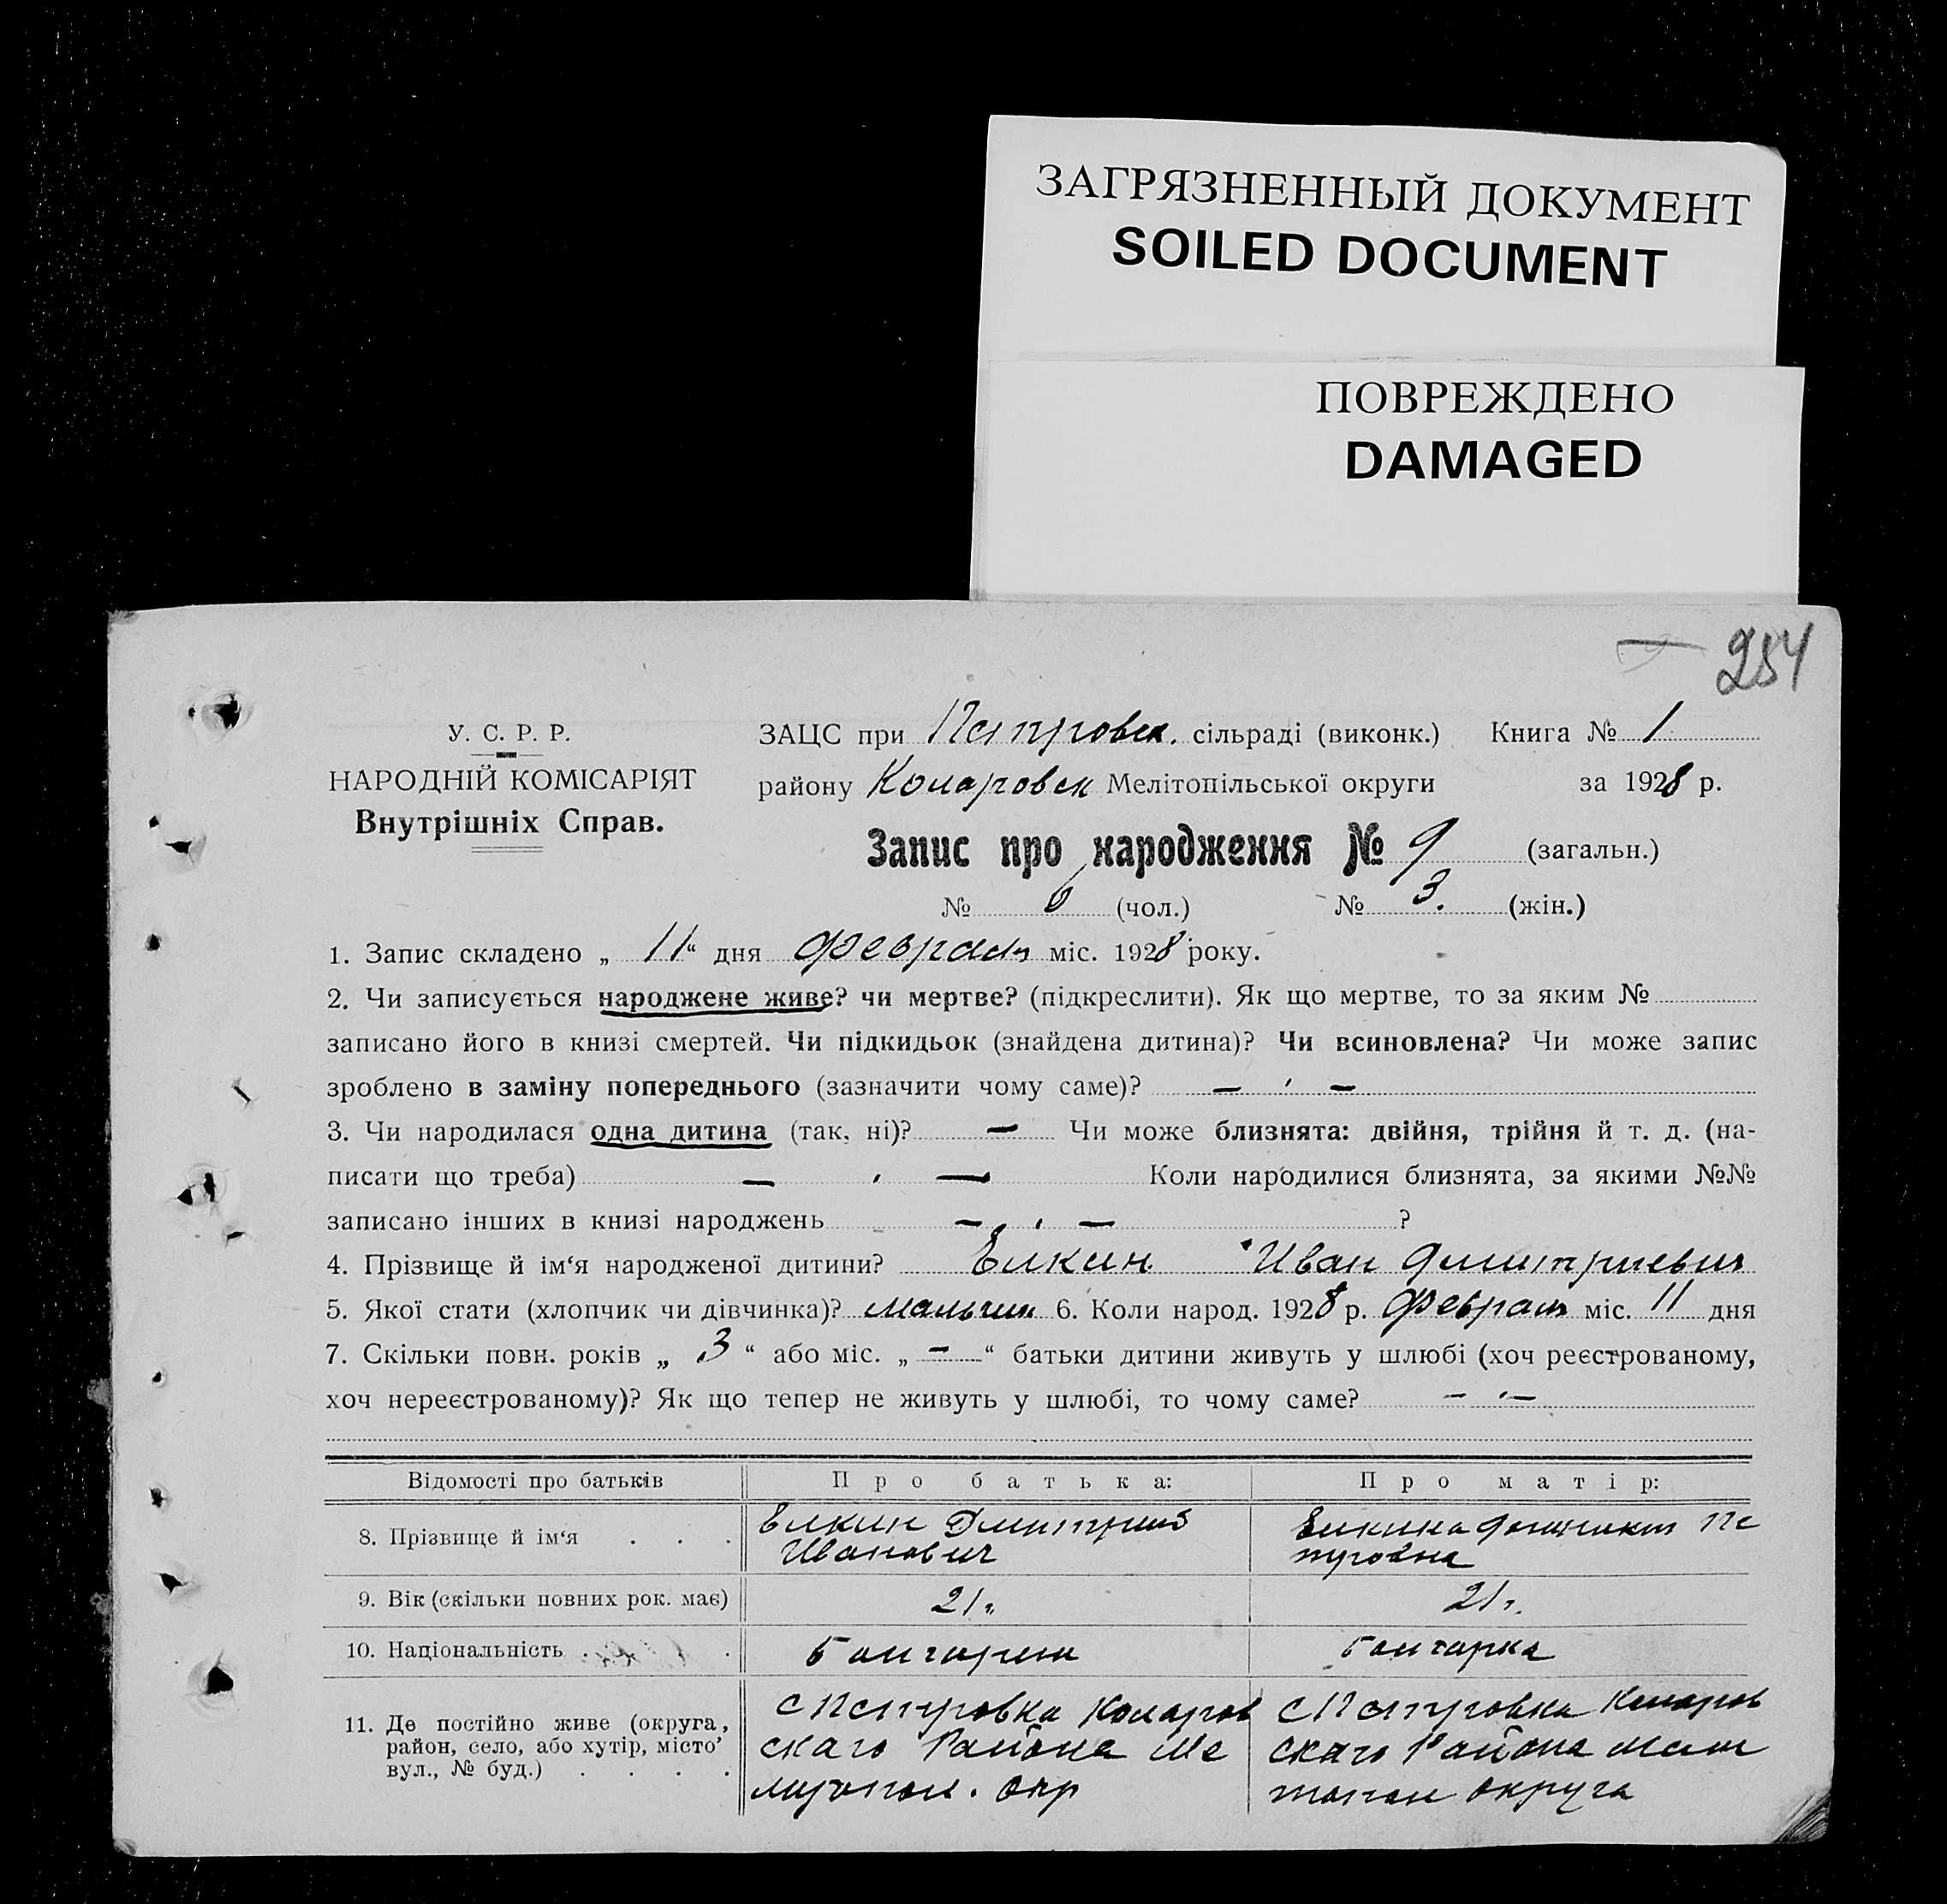 ЗАГРЯЗНЕННЫЙ ДОКУМЕНТ
SOILED DOCUMENT
ПОВРЕЖДЕНО
DAMAGED
254
У. С. Р. Р.
НАРОДНІЙ КОМІСАРІЯТ
Внутрішніх Справ.
ЗАЦС при Петровск. сільраді (виконк.) Книга № 1
району Коларовск Мелітопільської округи за 1928 р.
Запис про народження № 9 (загальн.)
№ 6 (чол.) № 3. (жін.)
1. Запис складено „ 11 “ дня февраля міс. 1928 року.
2. Чи записується народжене живе? чи мертве? (підкреслити). Як що мертве, то за яким №
записано його в книзі смертей. Чи підкидьок (знайдена дитина)? Чи всиновлена? Чи може запис
зроблено в заміну попереднього (зазначити чому саме)? — ' —
3. Чи народилася одна дитина (так, ні)? — Чи може близнята: двійня, трійня й т. д. (на-
писати що треба) — ' — Коли народилися близнята, за якими №№
записано інших в книзі народжень — ' — ?
4. Прізвище й ім‘я народженої дитини? Елкин Иван Дмитриевич
5. Якої стати (хлопчик чи дівчинка)? мальчик 6. Коли народ. 1928 р. февраля міс. 11 дня
7. Скільки повн. років „ 3 “ або міс. „ — “ батьки дитини живуть у шлюбі (хоч реєстрованому,
хоч нереєстрованому)? Як що тепер не живуть у шлюбі, то чому саме? — ' —
Відомості про батьків Про батька: Про матір:
8. Прізвище й ім‘я . . . Елкин Дмитрий Елкина Пе
Иванович тровна
9. Вік (скільки повних рок. має) 21 г. 21 г.
10. Національність . . Болгарин Болгарка
11. Де постійно живе (округа, с Петровка Коларов с Петровка Коларов
район, село, або хутір, місто’ скаго Района Ме скаго Района мели
вул., № буд.) . . . . литопол. окр топол округа